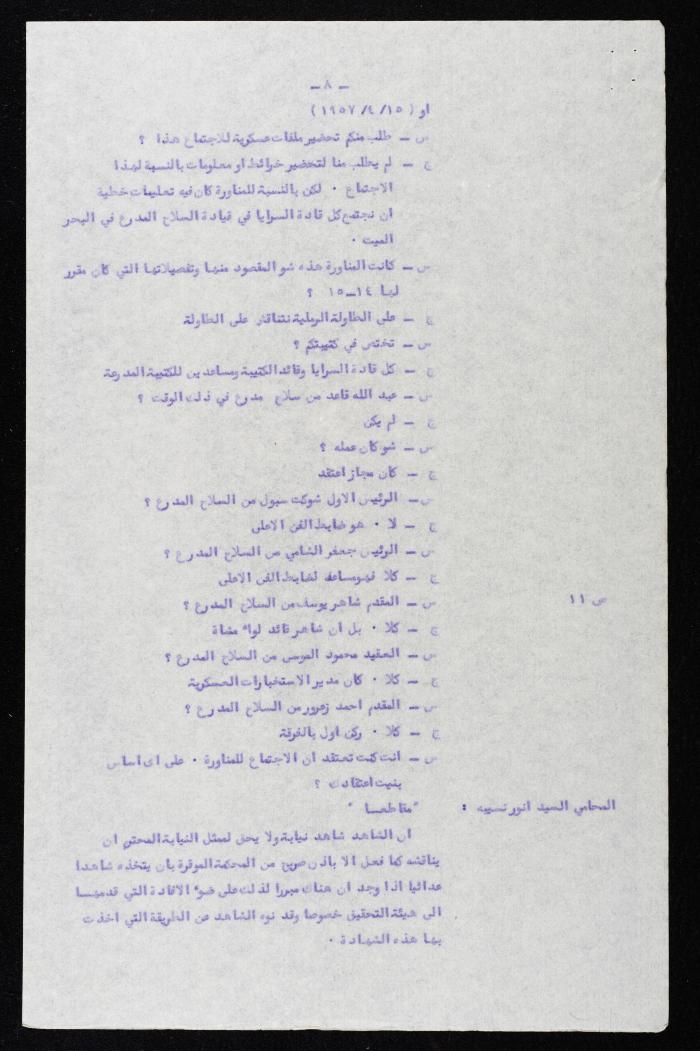 - ٨ -
او ( ١٥/ ٤/ ١٩٥٧ )
س - طلب منكم تحضير ملفات عسكرية للاجتماع هذا ؟
ج - لم يطلب منا لتحضير خرائط او معلومات بالنسبة لهذا
الاجتماع ٠ لكن بالنسبة للمناورة كان فيه تعليمات خطية
ان نجتمع كل قادة السرايا في قيادة السلاح المدرع في البحر
الميت ٠
س - كانت المناورة هذه شو المقصود منها وتفصيلاتها التي كان مقرر
لها ١٤-١٥ ؟
ج - على الطاولة الرملية نتناقش على الطاولة
س - تختص في كتيبتكم ؟
ج - كل قادة السرايا وقائد الكتيبة ومساعدين للكتيبة المدرعة
س - عبد الله قاعد من سلاح مدرع في ذلك الوقت ؟
ج - لم يكن
س - شو كان عمله ؟
ج - كان مجاز اعتقد
س - الرئيس الاول شوكت سبول من السلاح المدرع ؟
ج - لا ٠ هو ضابط الفن الاعلى
س - الرئيس جعفر الشامي من السلاح المدرع ؟
ج - كلا فهو مساعد لضابط الفن الاعلى
ص ١١
س - المقدم شاهر يوسف من السلاح المدرع ؟
ج - كلا ٠ بل ان شاهر قائد لواء مشاة
س - العقيد محمود الموسى من السلاح المدرع ؟
ج - كلا ٠ كان مدير الاستخبارات العسكرية
س - المقدم احمد زعرور من السلاح المدرع ؟
ج - كلا ٠ ركن اول بالفرقة
س - انت كنت تعتقد ان الاجتماع للمناورة ٠ على اى اساس
بنيت اعتقادك ؟
المحامي السيد انور نسيبه : "مقاطعا "
ان الشاهد شاهد نيابة ولا يحق لممثل النيابة المحترم ان
يناقشه كما فعل الا باذن صريح من المحكمة الموقرة بان يتخذه شاهدا
عدائيا اذا وجد ان هناك مبررا لذلك على ضوء الافادة التي قدمها
الى هيئة التحقيق خصوصا وقد نوه الشاهد عن الطريقة التي اخذت
بها هذه الشهادة ٠